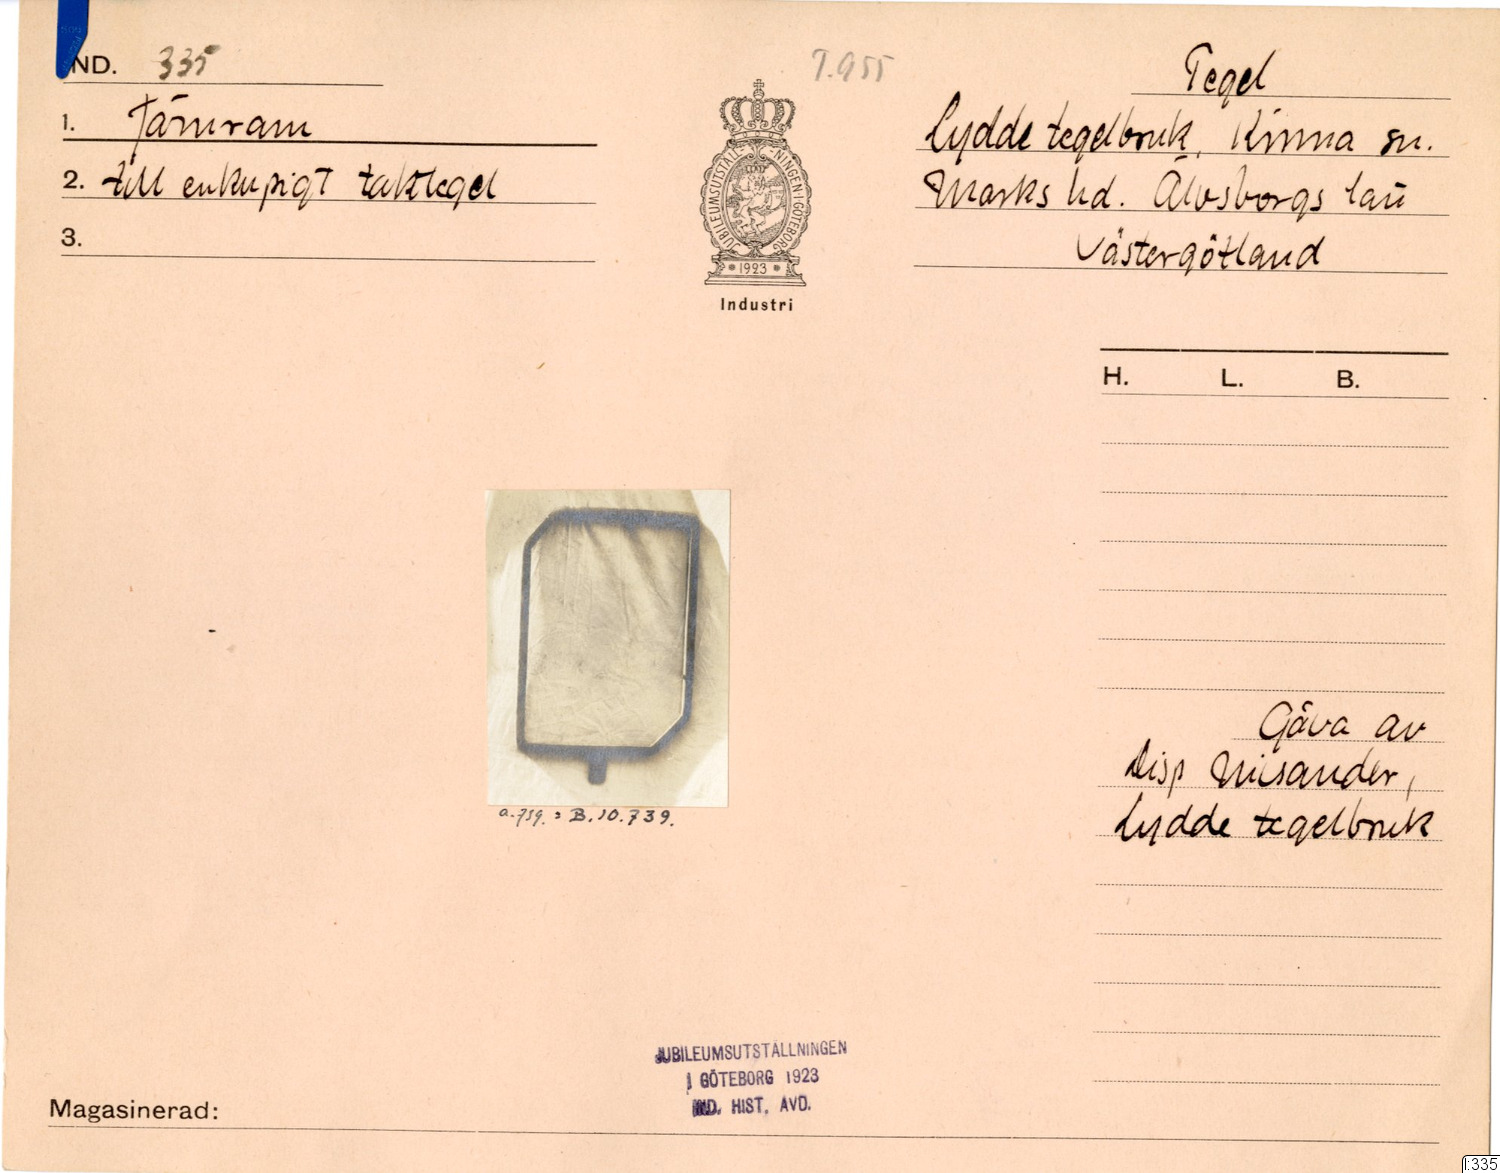 IND. 335
T.955
Tegel
1. Järnram
Lydde tegelbruk, Kinna sn.
2. till enkupigt taktegel
Marks hd. Älvsborgs län
3.
Västergötland
JUBILEUMSUTSTÄLLNINGEN I GÖTEBORG
* 1923 *
Industri
H. L. B.
Gåva av
Disp Nisander,
Lydde tegelbruk
a.739. : B.10.739.
JUBILEUMSUTSTÄLLNINGEN
I GÖTEBORG 1923
IND. HIST. AVD.
Magasinerad:
I:335